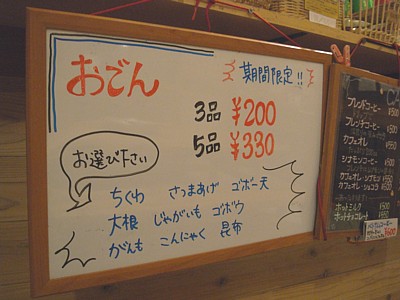 おでん
期間限定!!
3品 ¥200
5品 ¥330
お選び下さい
ちくわ さつまあげ ゴボー天
大根 じゃがいも ゴボウ
がんも こんにゃく 昆布
ブレンドコーヒー
フレンチコーヒー
カフェオレ
シナモンコーヒー
カフェオレ・シナモン
カフェオレ・ショコラ
ホットミルク
ホットチョコレート